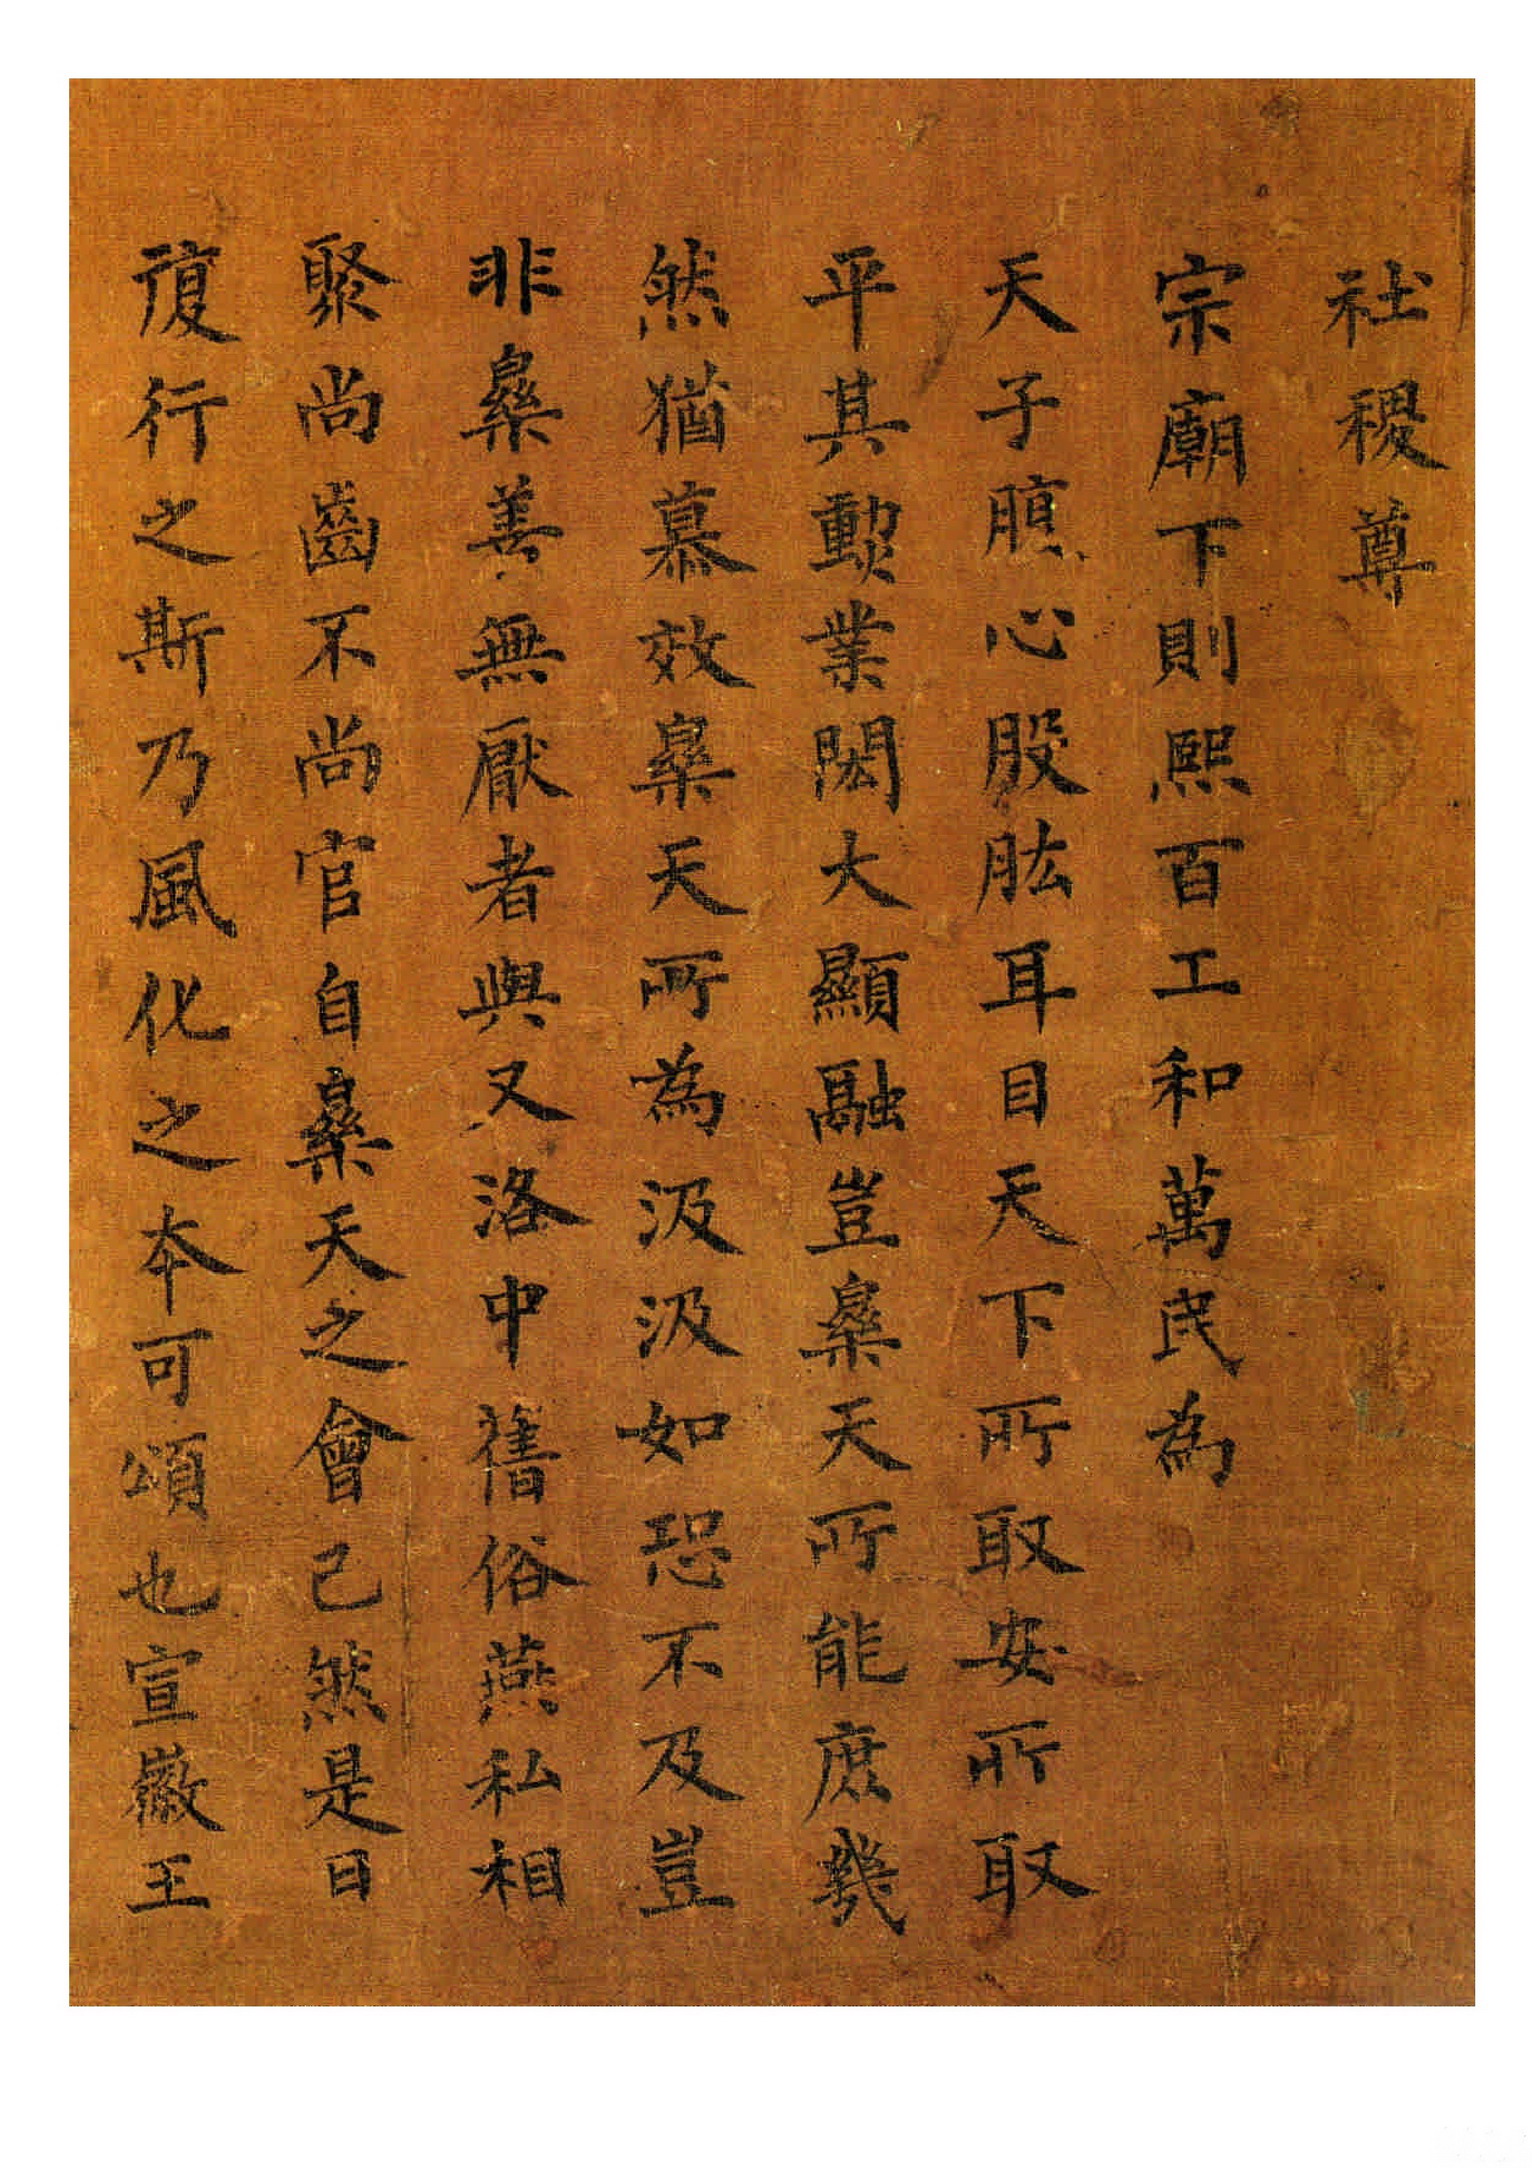 社稷尊
宗廟下則熙百工和萬民為
天子腹心股肱耳目天下所取安所取
平其勲業閎大顯融豈樂天所能庶幾
然猶慕效樂天所為汲汲如恐不及豈
非樂善無厭者與又洛中舊俗燕私相
聚尚齒不尚官自樂天之會已然是日
復行之斯乃風化之本可頌也宣徽王